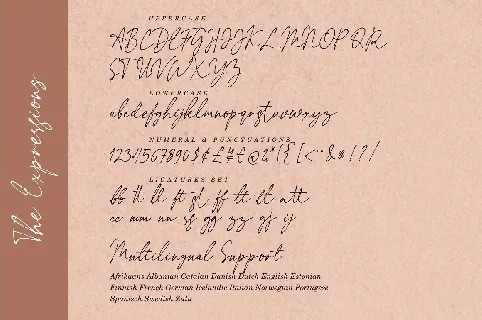 The Expressions
UPPERCASE
ABCDEFGHIJKLMNOPQR
STUVWXYZ
LOWERCASE
abcdefghijklmnopqrstuvwxyz
NUMERAL & PUNCTUATIONS
1234567890$¢£¥€@
LIGATURES SET
bb tt ll ft
cc mm nn gg zz ij
Multilingual Support
Afrikaans Albanian Catalan Danish Dutch English Estonian
Finnish French German Icelandic Italian Norwegian Portugese
Spanisch Swedish Zulu